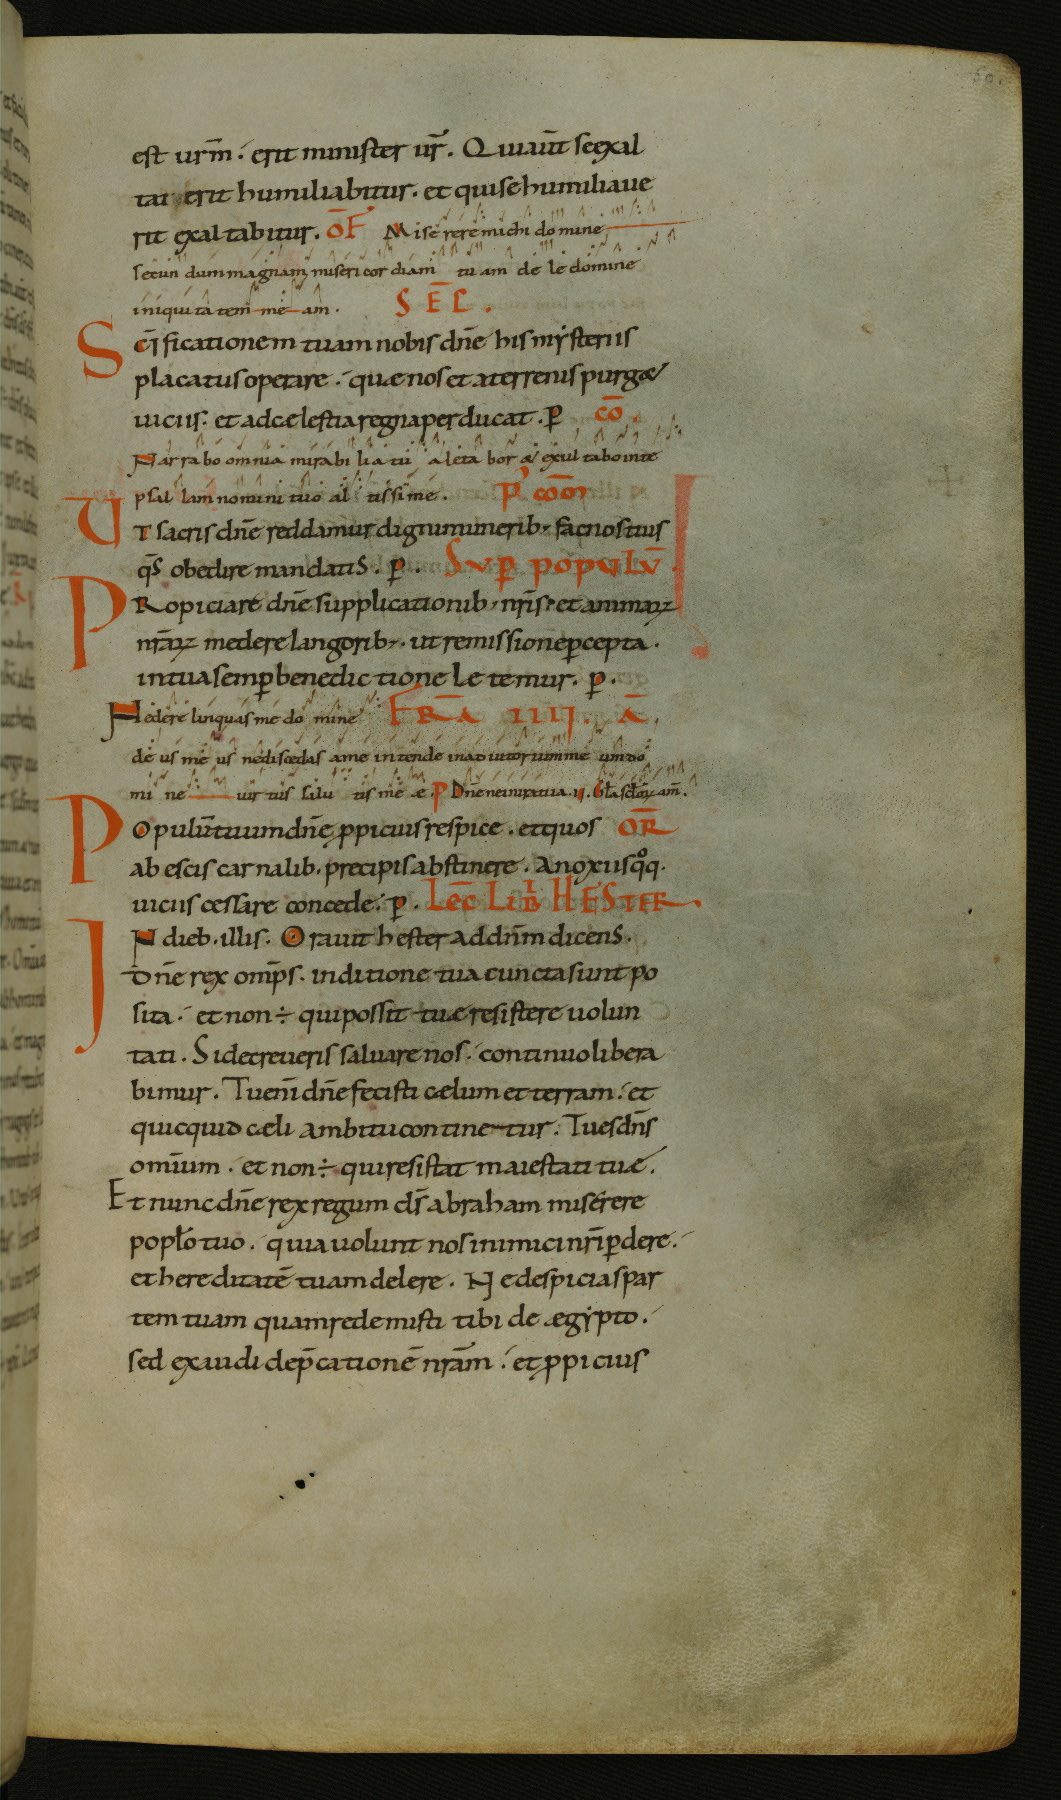 60.
est urm̄. erit minister ur̄. Qui aut̄ se exal
tauerit humiliabitur. et qui se humiliaue
rit exaltabitur. OF̄ Miserere michi domine
secundum magnam misericordiam tuam dele domine
iniquitatem meam. SEC̄.
Sc̄ificationem tuam nobis dn̄e his mysteriis
placatus operare. quæ nos et a terrenis purget
uiciis. et ad celestia regna perducat. ꝑ CŌ.
Narrabo omnia mirabilia tua letabor et exultabo in te
psallam nomini tuo altissime. P' COO
Ut sacris dn̄e reddamur digni munerib; fac nos tuis
qs̄ obedire mandatis. ꝑ. SUꝑ POPULŪ.
Propiciare dn̄e supplicationib; nr̄is. et animaꝝ
nr̄aꝝ medere langorib;. ut remissione ꝑcepta.
in tua semꝑ benedictione letemur. ꝑ.
Ne derelinquas me domine FR̄A IIII. Ā.
deus meus ne discedas a me intende in adiutorium meum do
mine uirtus salutis meæ. P Dn̄e ne in ira tua. ii. Gl̄a sclo̅ꝝ am̄.
Populū tuum dn̄e ꝓpicius respice. et quos OR̄
ab escis carnalib. precipis abstinere. a noxiis qͦq.
uiciis cessare concede. ꝑ. LEC̄ LIƀ HESTER.
In dieb. illis. Orauit hester ad dn̄m dicens.
Dn̄e rex omp̄s. in ditione tua cuncta sunt po
sita. et non ÷ qui possit tuæ resistere uolun
tati. Si decreueris saluare nos. continuo libera
bimur. Tu eni̅ dn̄e fecisti cælum et terram. et
quicquid cæli ambitu continetur. Tu es dn̄s
omīum. et non ÷ qui resistat maiestati tuæ.
Et nunc dn̄e rex regum ds̄ abraham miserere
popl̄o tuo. quia uolunt nos inimici nr̄i ꝑdere.
et hereditatē tuam delere. Ne despicias par
tem tuam quam redemisti tibi de ægypto.
sed exaudi dep̄cationē nr̄am. et ꝓpicius